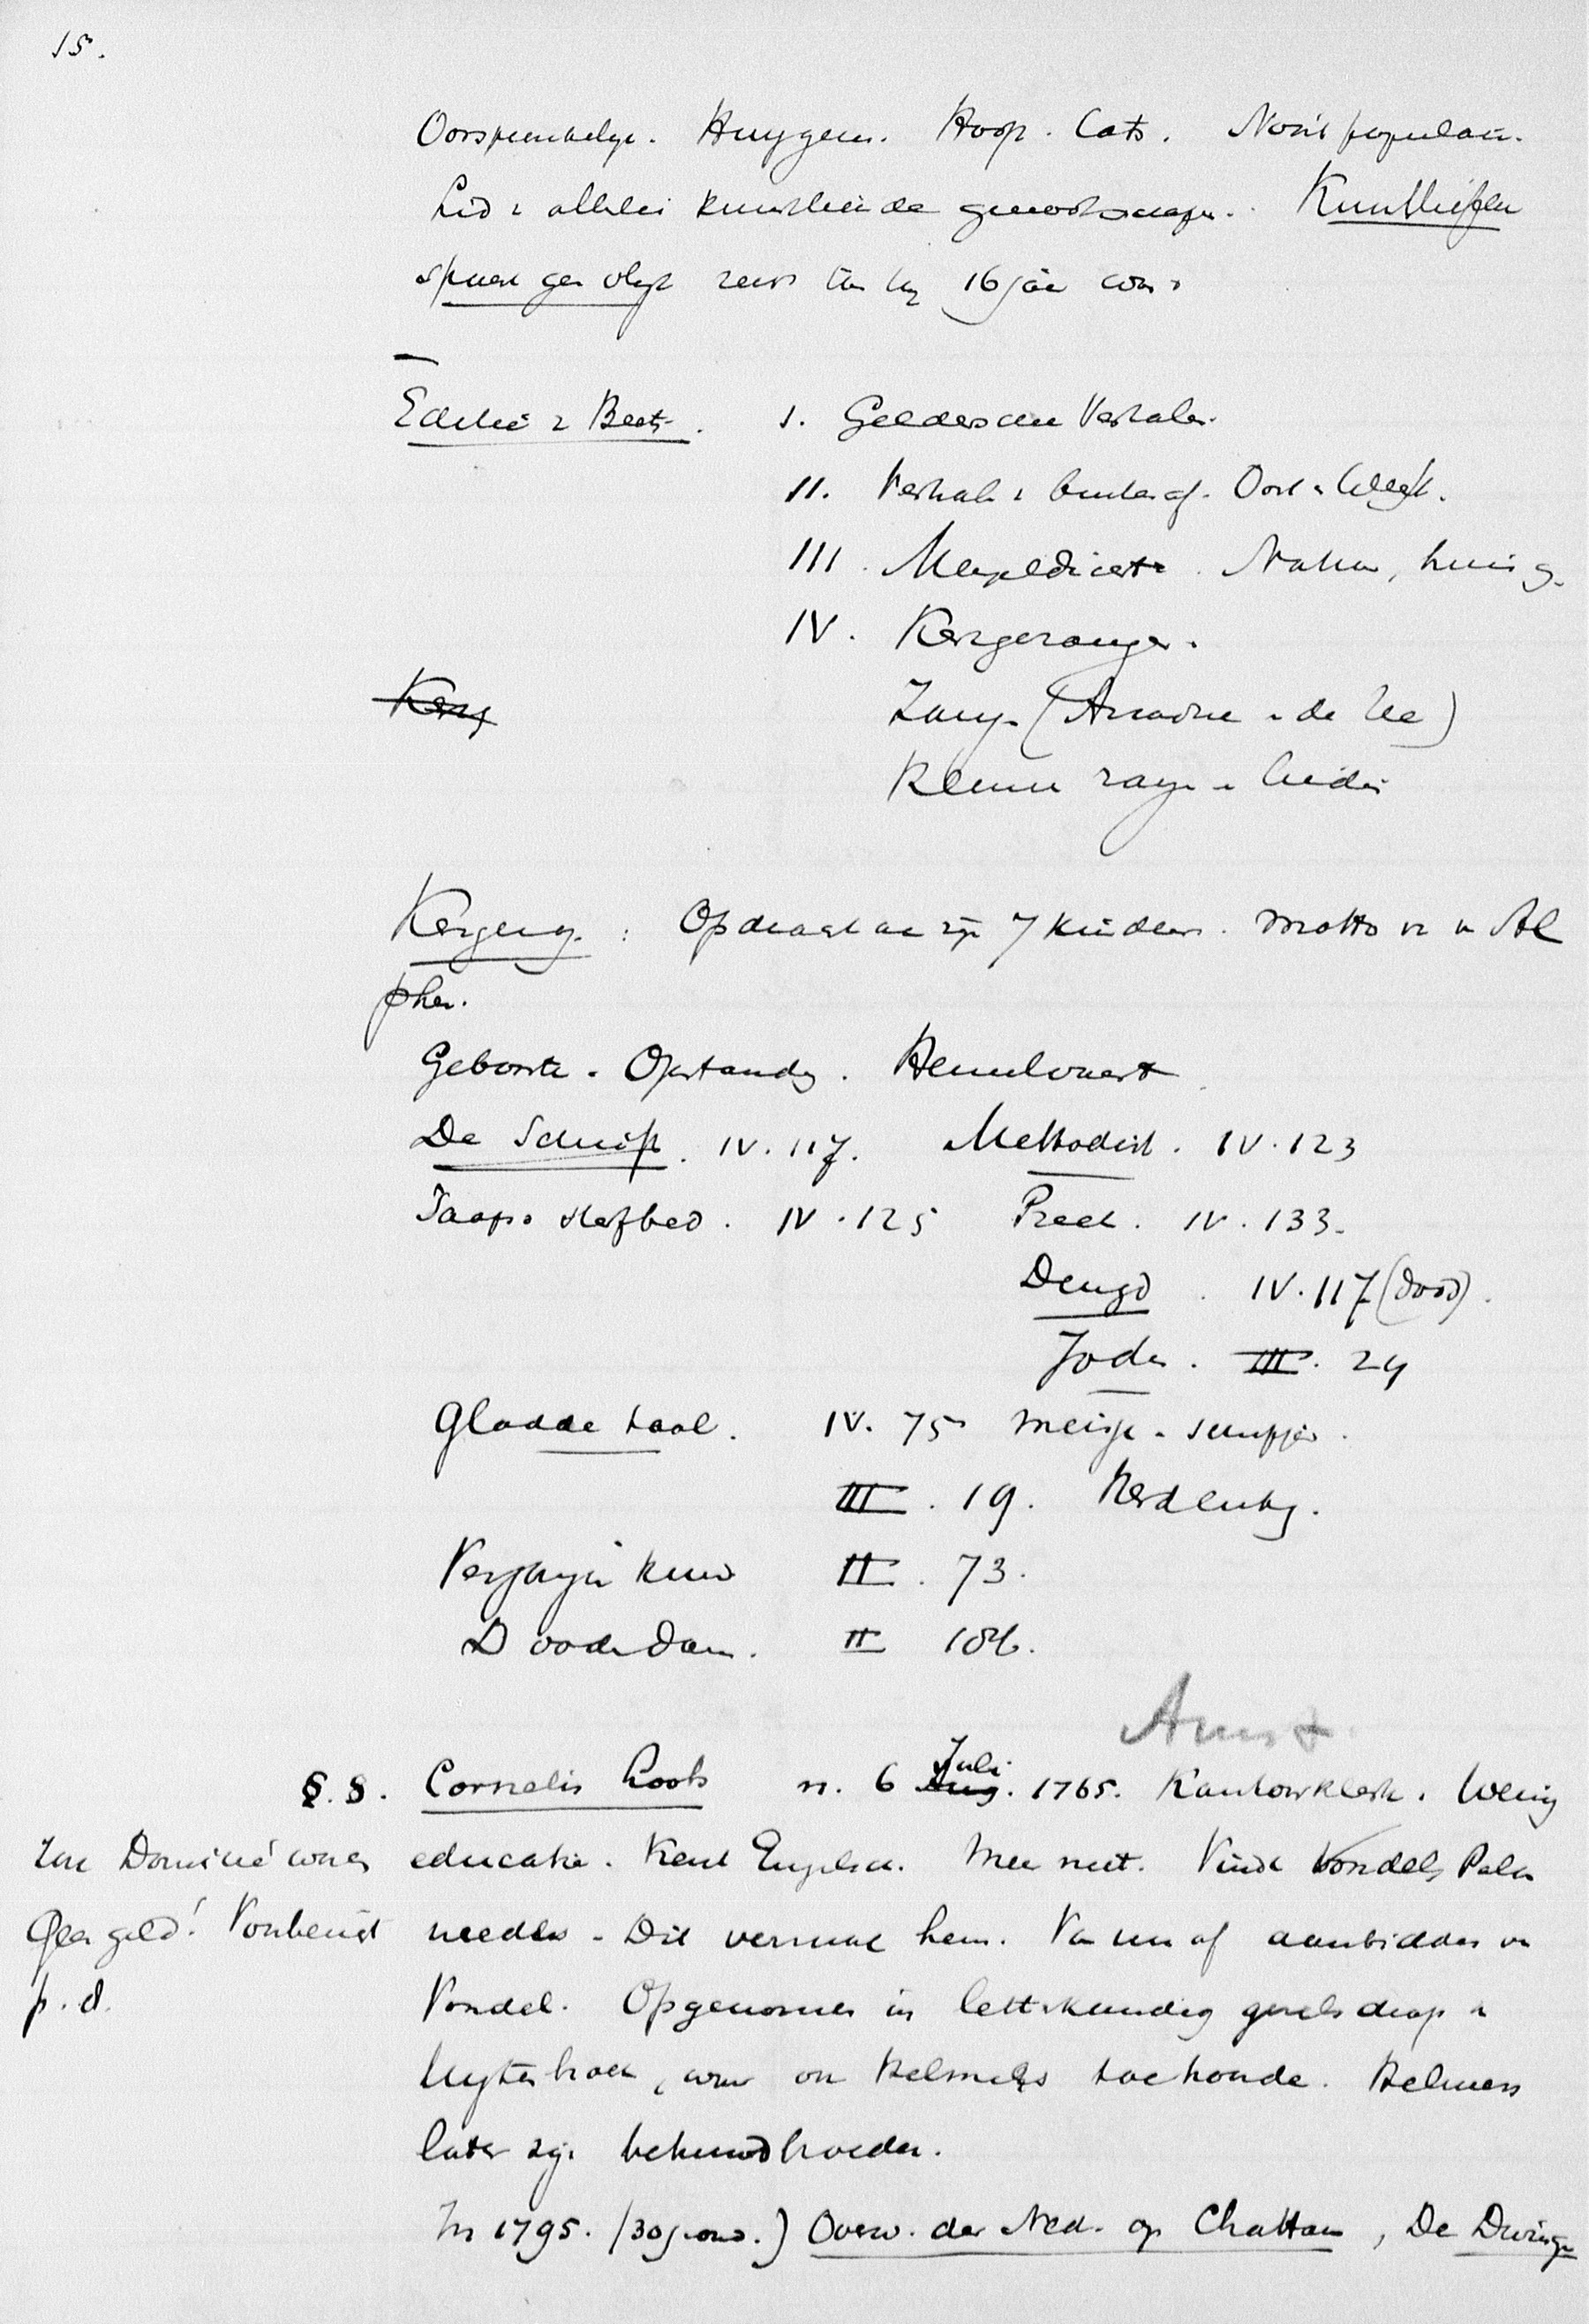 15.
Oorspronkelijk. Huygens. Hooft. Cats. Nooit populair.
Lid v allerlei kunstlievende genootschapen. Kunstliefde
spaart geen vlijt reeds toen hij 16 jaar was
Editie v Beets. I. Geldersche Verhalen.
II. Verhal. v buitenaf. Oost & West.
III. Mengeldichten. Natuur, huis g.
IV. Kerkgezangen.
Kerg Zang (Ariadne de Zee)
Kleine zangen liedn
Kergezg. : Opdracht aan zijn 7 kinderen. Motto v Al
phen.
Geboorte. Opstandg. Hemelvaart
De Schrift. IV. 117. Methodist. IV. 123
Jaaps sterfbed. IV. 125 Preek. IV. 133.
Deugd. IV. 117 (dood).
Joden. III. 24
Gladde taal. IV. 75 meisje
III. 19. Herdenkg.
II. 73.
Doodendans. II 106.
Amst.
§. 8. Cornelis Loots n. 6 Aug. Juli 1765. Kantoorklerk. Weinig
Zou Dominé worden educatie. Kent Engelsch. Meer niet. Vindt Vondels Pala
Geen geld! Vondel medes. Dit vormde hem. Van nu af aanbidder van
p. d. Vondel. Opgenomen in letterkundig gezelschap v
Uylenbroek, waar ook Helmers toe hoorde. Helmers
later zijn behuwdbroeder.
In 1795. (30j. oud.) Overw. der Ned. op Chattam, De Dwinge